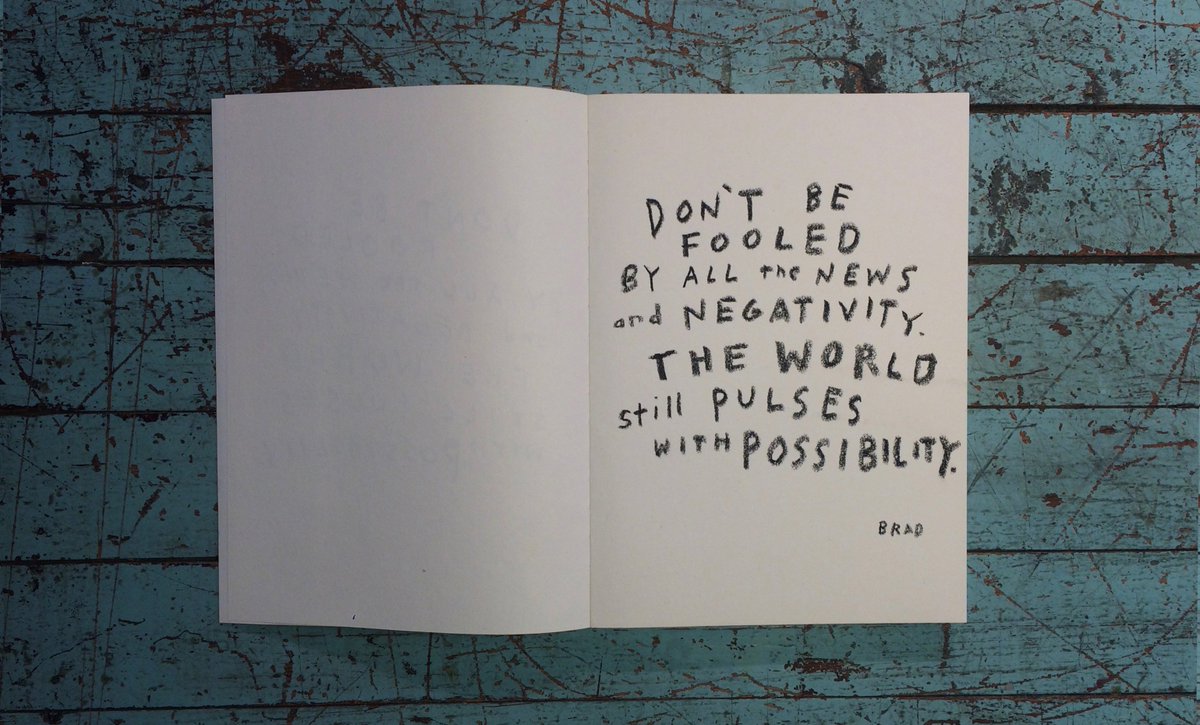 DON'T BE
FOOLED
BY ALL the NEWS
and NEGATIVITY.
THE WORLD
still PULSES
WITH POSSIBILITY.
BRAD